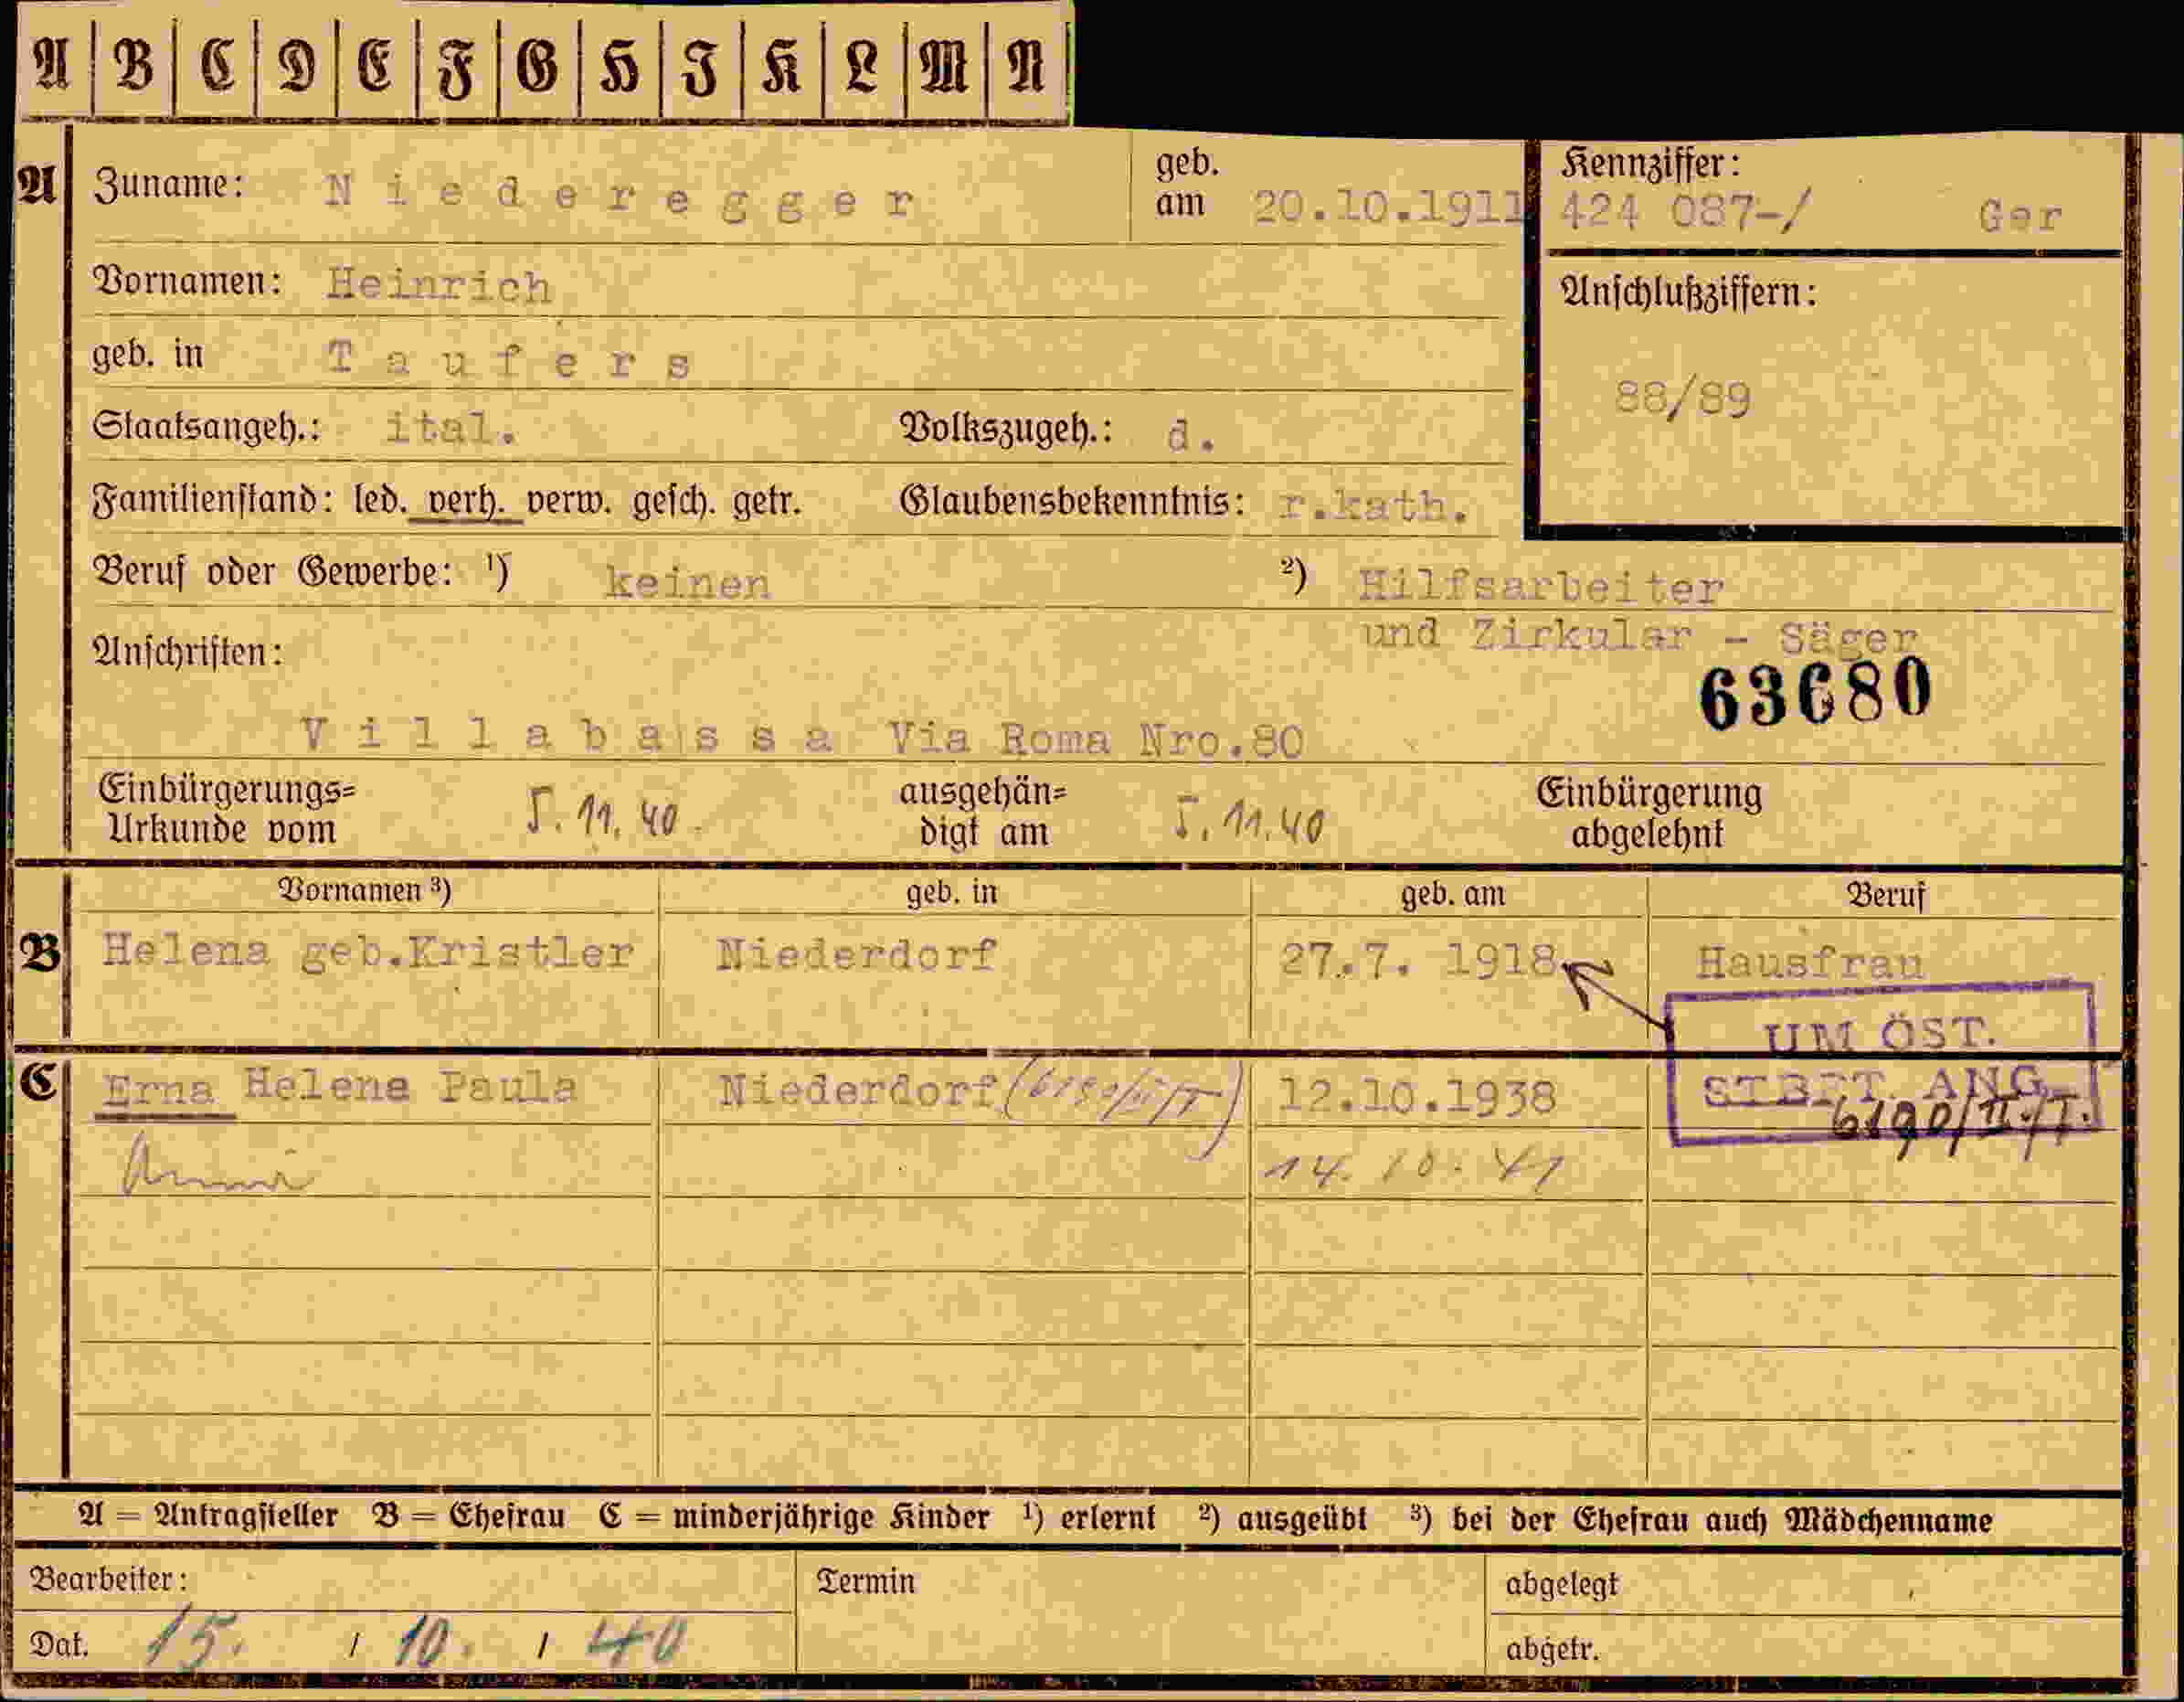 A B C D E F G H I K L M N
A Zuname: Niederegger geb. am 20.10.1911 Kennziffer: 424 087-/ Ger
Vornamen: Heinrich
Anschlußziffern:
geb. in Taufers
88/89
Staatsangeh.: ital. Volkszugeh.: d.
Familienstand: led. verh. verw. gesch. getr. Glaubensbekenntnis: r.kath.
Beruf oder Gewerbe: ¹) keinen ²) Hilfsarbeiter
und Zirkular - Säger
Anschriften:
63680
Villabassa Via Roma Nro.80
Einbürgerungs= Urkunde vom 5.11.40. ausgehän= digt am 5.11.40 Einbürgerung abgelehnt
Vornamen ³) geb. in geb. am Beruf
B Helena geb.Kristler Niederdorf 27.7. 1918 Hausfrau
UM ÖST.
C Erna Helena Paula Niederdorf (6190/II/T) 12.10.1938 STBFT. ANG.
6190/II./T.
14.10.41
A = Antragsteller B = Ehefrau C = minderjährige Kinder ¹) erlernt ²) ausgeübt ³) bei der Ehefrau auch Mädchenname
Bearbeiter: Termin abgelegt
Dat. 15. / 10. / 40 abgetr.